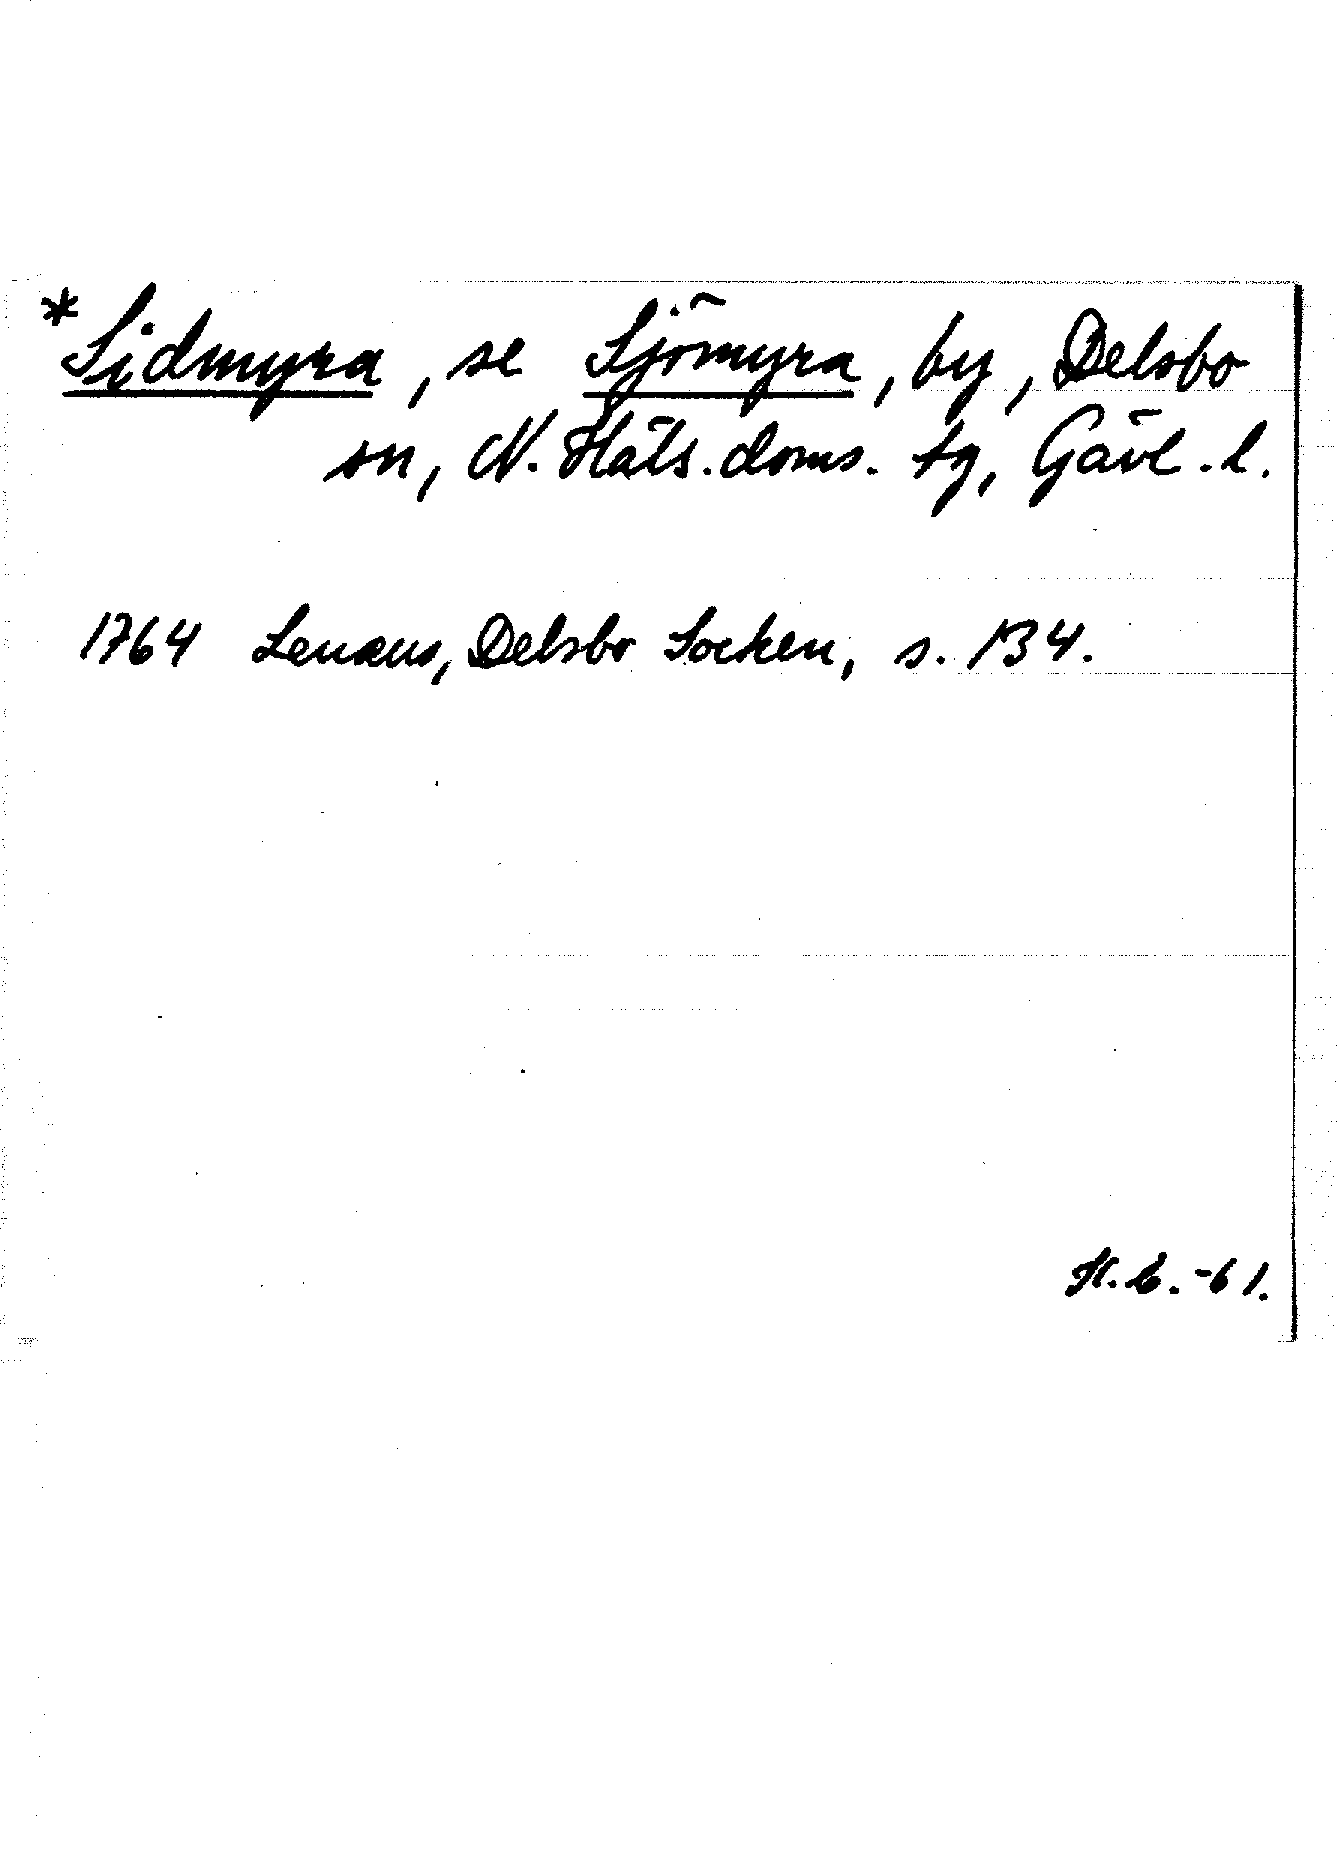 *Sidmyra, se Sjömyra, by, Delsbo
sn, N. Häls. doms. tg, Gävl. l.
1764 Lenæus, Delsbo Socken, s. 134.
-61.